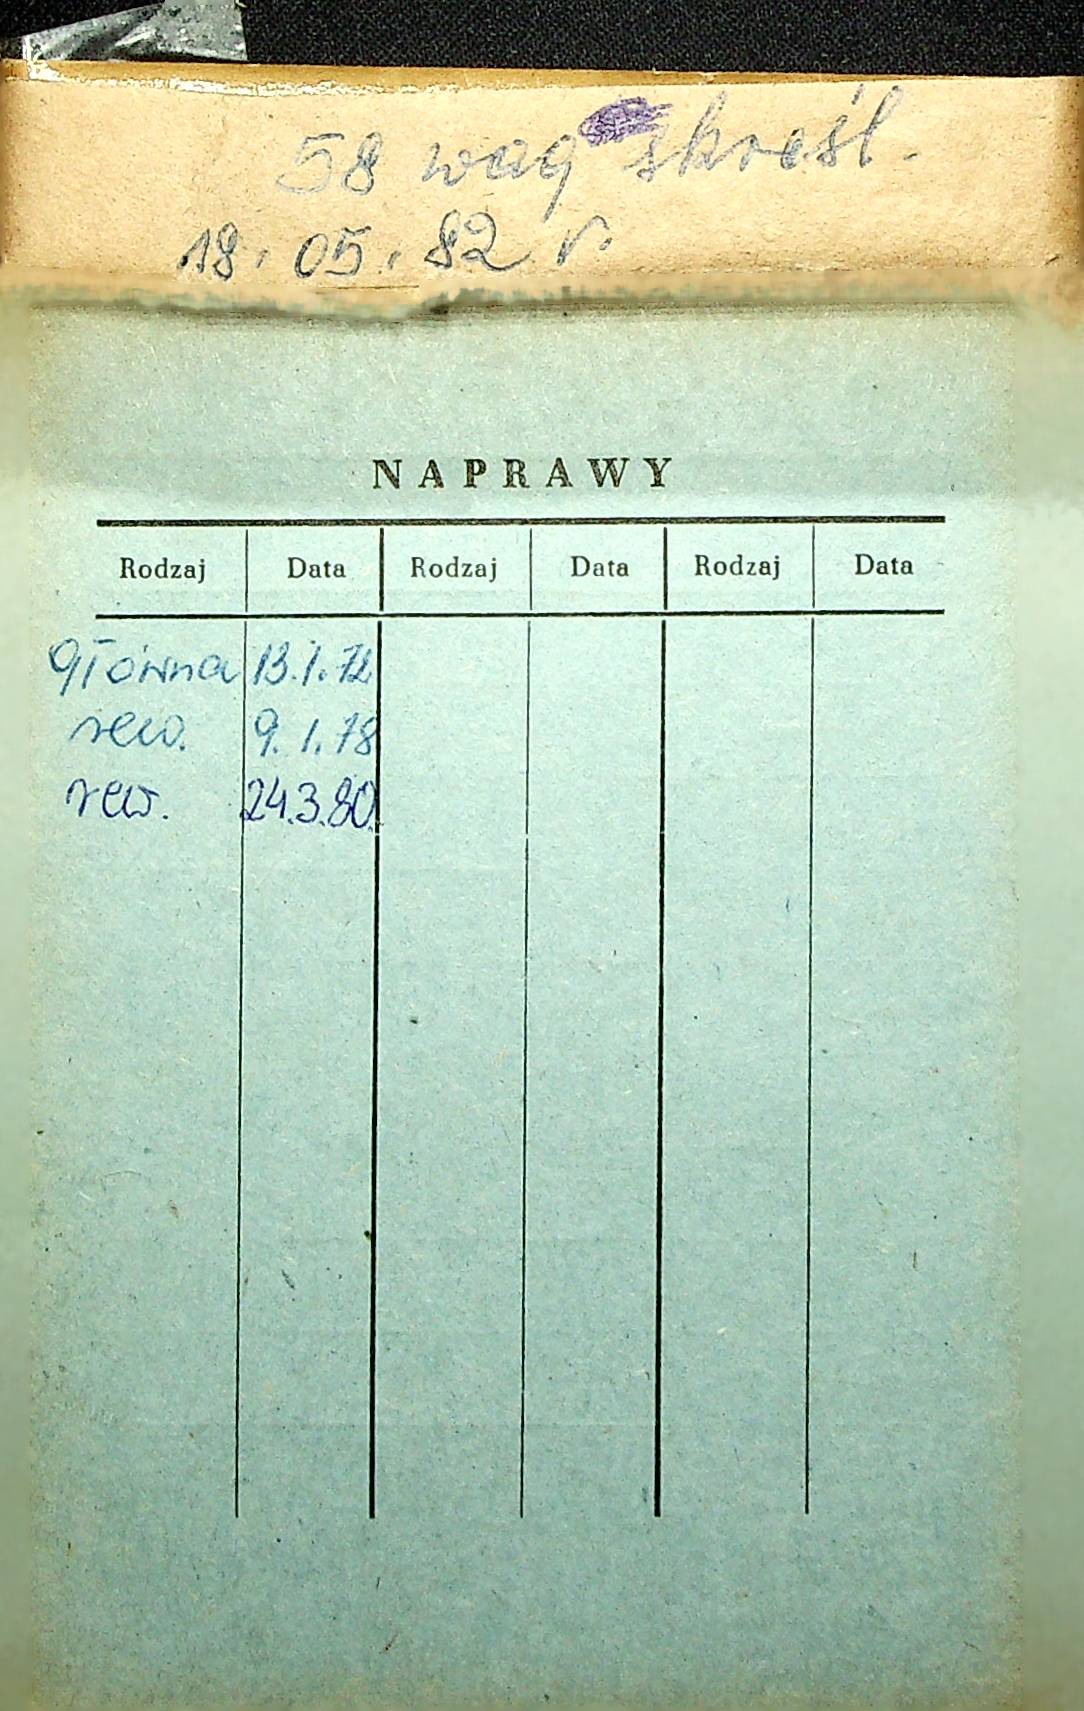 58 wag skreśl.
18.05.82 r.
NAPRAWY
Rodzaj Data Rodzaj Data Rodzaj Data
główna 13.1.72
rew. 9.1.78
rew. 24.3.80.